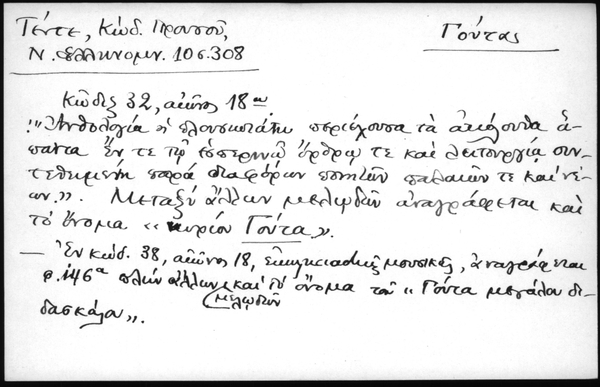 Τέντε, Κώδ. Προυσού,
Ν. Ἑλληνομν. 10 σ. 308
Γούτας
Κῶδιξ 32, αἰῶνος 18ου
:"Ἀνθολογία ἡ πλουσιωτάτη περιέχουσα τὰ ἀκόλουθα ἅ-
παντα ἔν τε τῷ ἑσπερινῷ ὄρθρῳ τε καὶ λειτουργίᾳ συν-
τεθειμένη παρὰ διαφόρων ποιητῶν παλαιῶν τε καὶ νέ-
ων.". Μεταξὺ ἄλλων μελῳδῶν ἀναγράφεται καὶ
τὸ ὄνομα "κυρίου Γούτα".
— Ἐν κώδ. 38, αἰῶνος 18, ἐκκλησιαστικῆς μουσικῆς, ἀναγράφεται
φ. 146α πλὴν ἄλλων μελῳδῶν καὶ τὸ ὄνομα τοῦ "Γούτα μεγάλου δι-
δασκάλου".